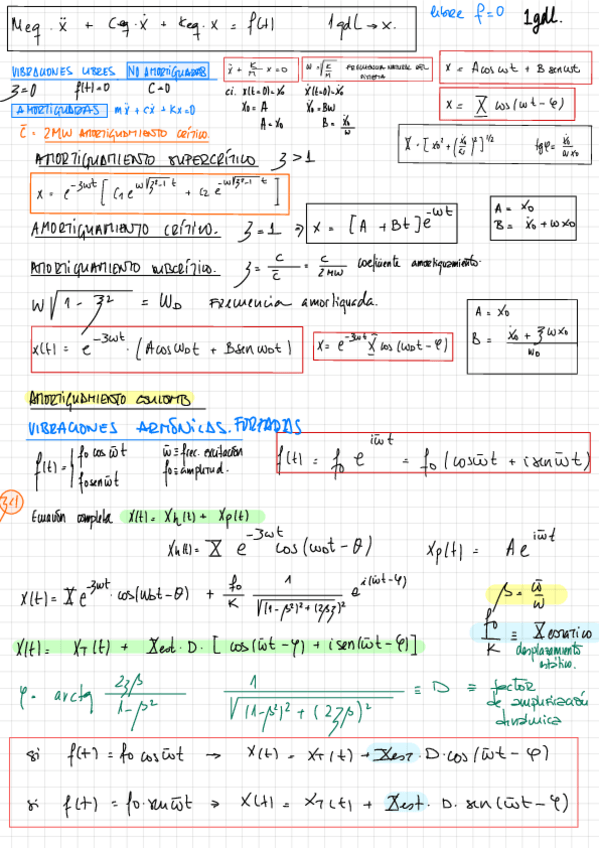 Meq · ẍ + Ceq · ẋ + Keq · x = f(t)    1gdl → x.
libre f=0    1gdl.
VIBRACIONES LIBRES NO AMORTIGUADAS
ẍ + K/M · x = 0
w = √(K/M) FRECUENCIA NATURAL DEL SISTEMA
x = A cos wt + B sen wt
ξ=0    f(t)=0    C=0
c.i. x(t=0)=x₀    ẋ(t=0)=ẋ₀
x₀ = A    ẋ₀ = Bw
A = x₀    B = ẋ₀/w
x = X cos (wt − φ)
AMORTIGUADAS mẍ + cẋ + Kx = 0
c̄ = 2MW AMORTIGUAMIENTO CRÍTICO
X = [x₀² + (ẋ₀/w)²]^1/2    tgφ = ẋ₀/(w x₀)
AMORTIGUAMIENTO SUPERCRÍTICO ξ > 1
x = e^−ξwt [C₁ e^w√(ξ²−1) t + C₂ e^−w√(ξ²−1) t]
AMORTIGUAMIENTO CRÍTICO. ξ = 1 ⇒ x = [A + Bt] e^−wt
A = x₀
B = ẋ₀ + w x₀
AMORTIGUAMIENTO SUBCRÍTICO. ξ = C/C̄ = C/2MW coeficiente amortiguamiento.
w √(1 − ξ²) = W_D Frecuencia amortiguada.
x(t) = e^−ξwt · (A cos w_D t + B sen w_D t)
x = e^−ξwt X̂ cos (w_D t − φ)
A = x₀
B = (ẋ₀ + ξ w x₀)/w_D
AMORTIGUAMIENTO COULOMB
VIBRACIONES ARMÓNICAS. FORZADAS
f(t) = { f₀ cos w̄t
f₀ sen w̄t
w̄ ≡ frec. excitación
f₀ ≡ amplitud.
f(t) = f₀ e^iw̄t = f₀ (cos w̄t + i sen w̄t)
ξ<1
Ecuación completa X(t) = X_h(t) + X_p(t)
X_h(t) = X e^−ξwt cos (w_D t − θ)    X_p(t) = A e^iw̄t
X(t) = X e^−ξwt · cos (w_D t − θ) + f₀/K 1/√((1−β²)² + (2βξ)²) e^i(w̄t−φ)
β = w̄/w
f₀/K ≡ X ESTÁTICO
desplazamiento estático.
X(t) = X_T(t) + X est. D. [cos (w̄t − φ) + i sen (w̄t − φ)]
φ = arctg 2ξβ/(1−β²)    1/√((1−β²)² + (2ξβ)²) ≡ D ≡ factor de amplificación dinámica
si f(t) = f₀ cos w̄t → X(t) = X_T(t) + X est. D. cos (w̄t − φ)
si f(t) = f₀ · sen w̄t → X(t) = X_T(t) + X est. D. sen (w̄t − φ)